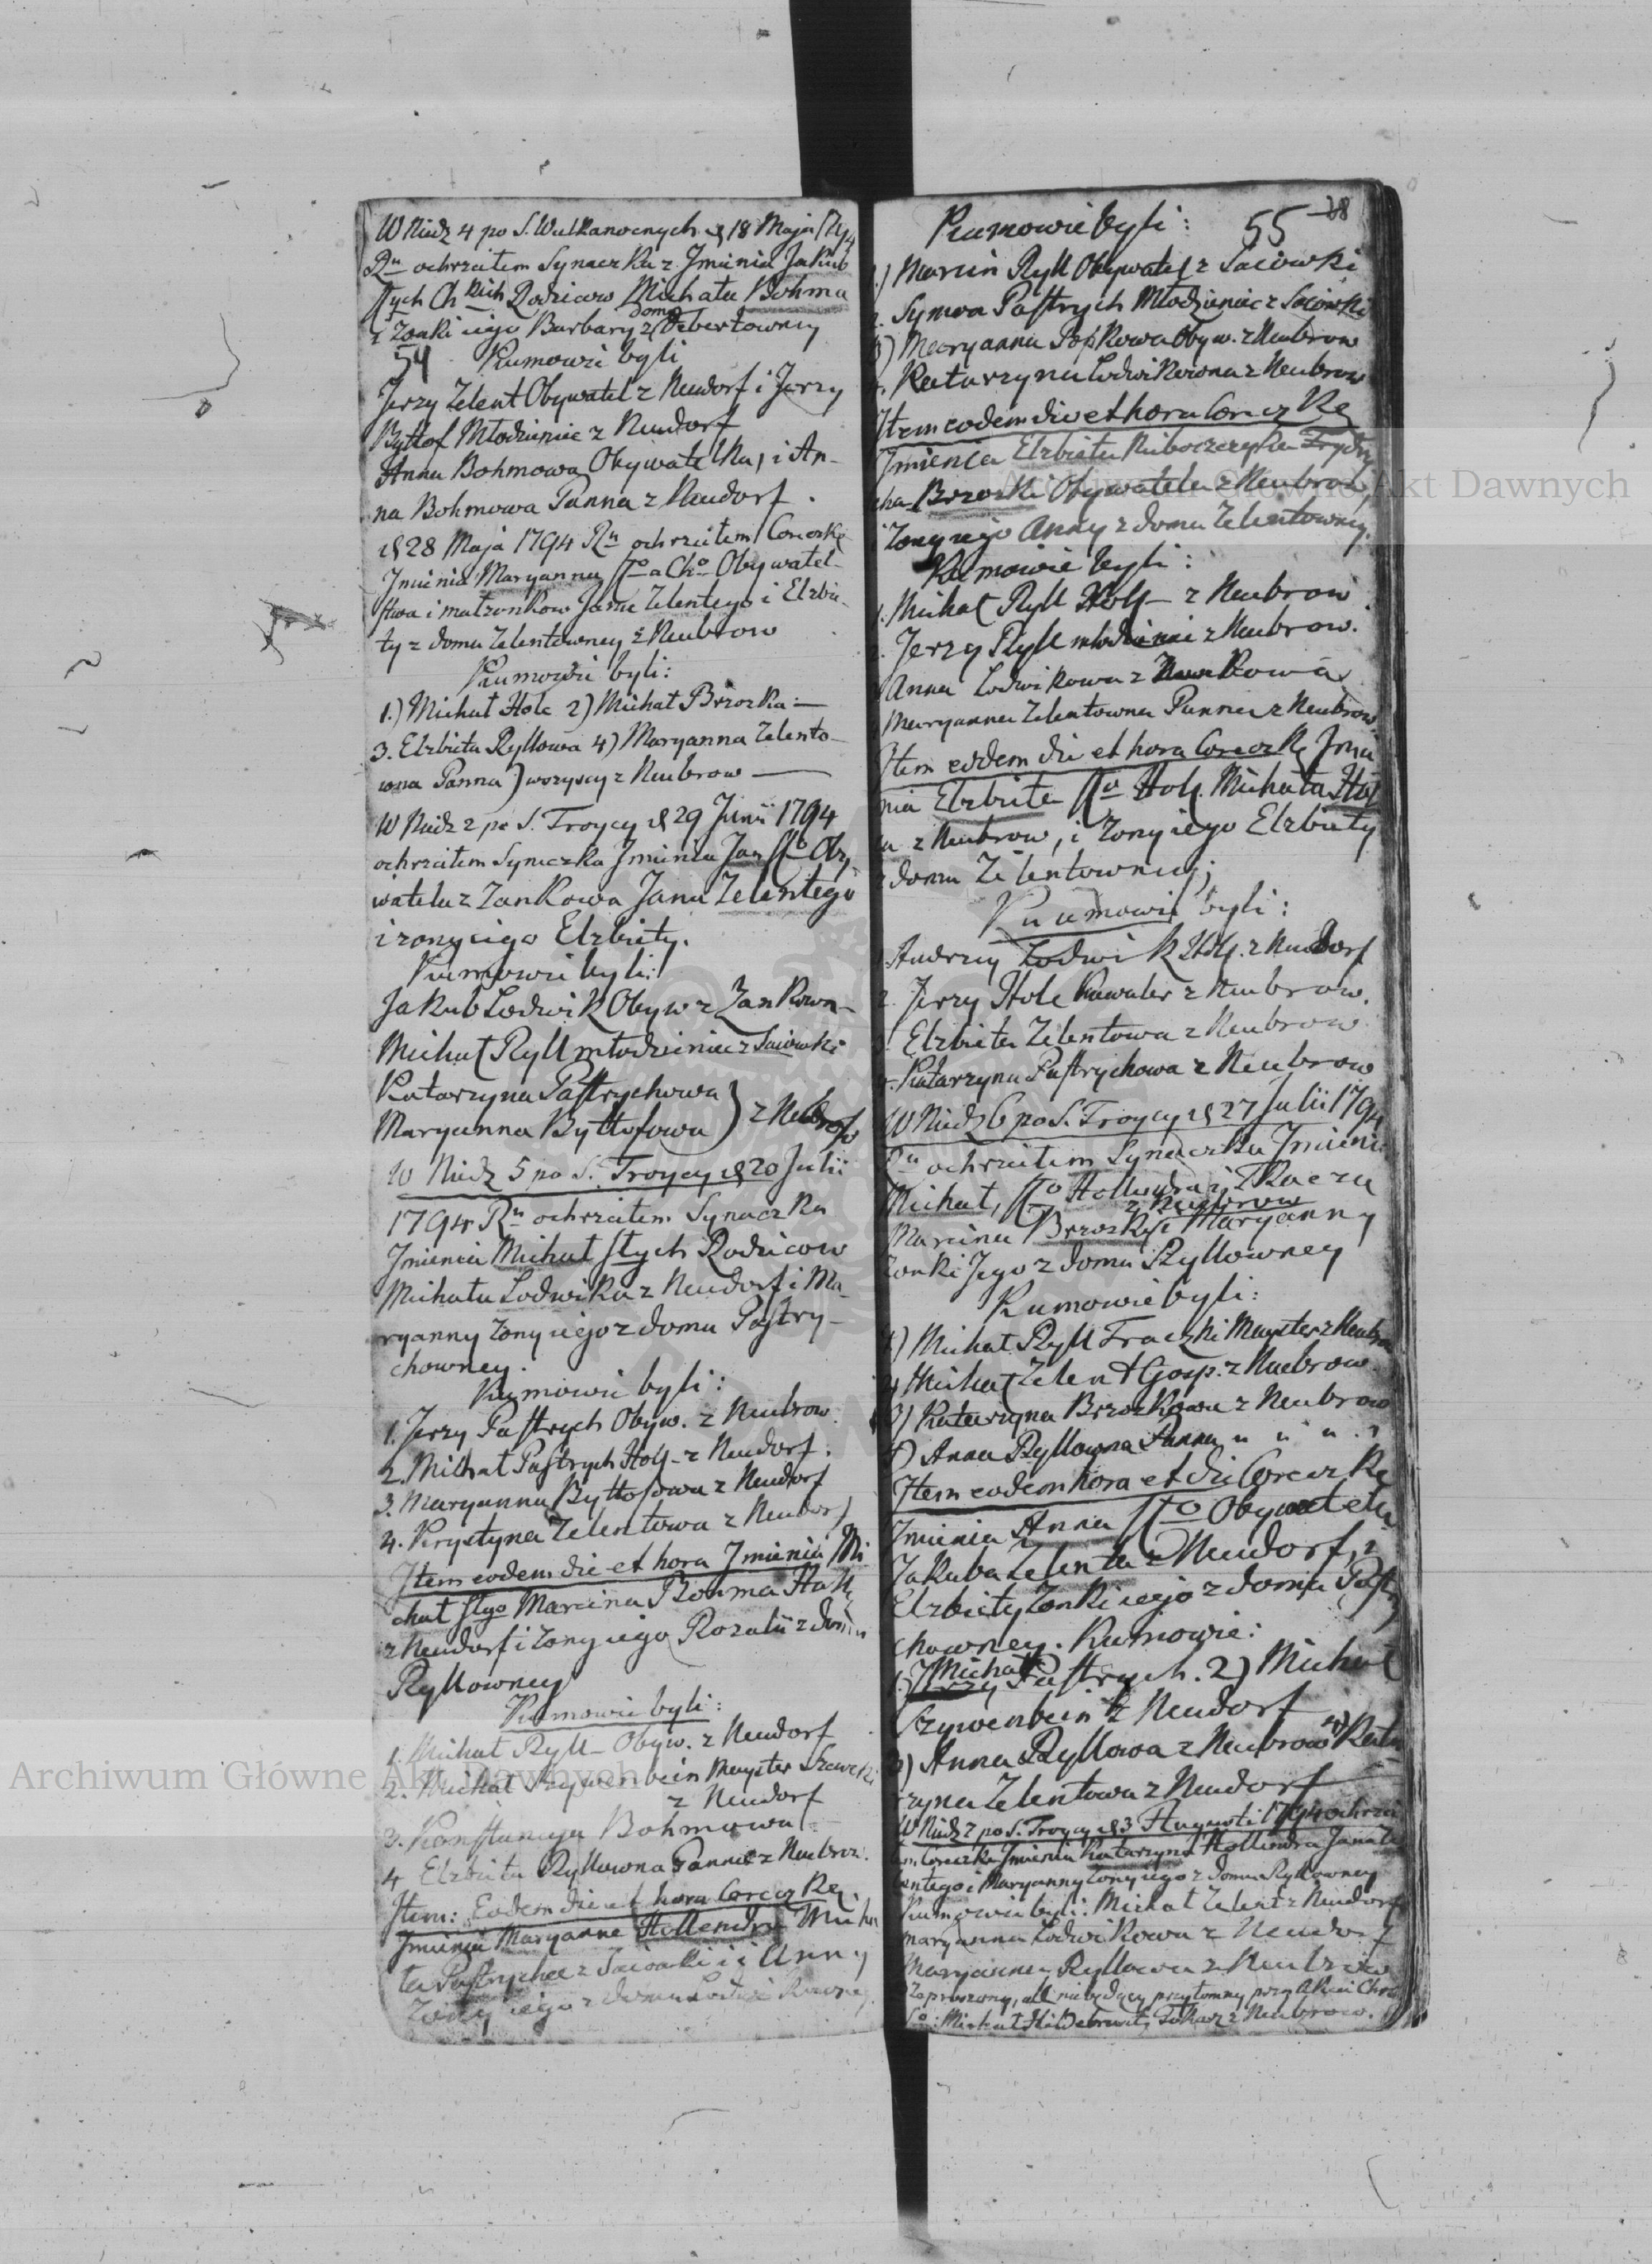 W Niedz 4 po S. Wielkanocnych d 18 Maja 1794
Rn ochrzcilem Synaczka z Jmienia Jakub
stych Chkich Rodzicow Michała Bohma
i Zonki iego Barbary z domu
54 Kumowie byli
Jerzy Zelent Obywatel z Neudorf i Jerzy
Byttof Młodzieniec z Neudorf
Anna Bohmowa Obywatelka, i An-
na Bohmowa Panna z Neudorf.
d 28 Maja 1794 Rn ochrzcilem Coreczkę
Jmienia Maryanna Obywatel-
stwa i matzonkow Jana Zelentego i Elzbie-
ty z domu Zelentowney z Neubrow
Kumowie byli:
1.) Michał Hole 2) Michał Brzozka —
3. Elzbieta Ryllowa 4) Maryanna Zelento-
wna Panna) wszyscy z Neubrow —
W Niedz 2 po S. Troycy d 29 Junii 1794
ochrzcilem Synaczka Jmienia Jan Oby-
watela z Zankowa Jana Zelentego
i zony iego Elzbiety.
Kumowie byli:
Jakub Lodwik Obyw z Zankowa
Michał Ryll młodzieniec z Saiowki
Katarzyna Pastrychowa
Maryanna Byttofowa } z Neudorf
W Niedz 5 po S. Troycy d 20 Julii
1794 Rn ochrzcilem Synaczka
Jmienia Michał stych Rodzicow
Michała Lodwika z Neudorf i Ma-
ryanny Zony iego z domu Pastry-
chowney.
Kumowie byli:
1. Jerzy Pastrych Obyw. z Neubrow.
2. Michał Pastrych Holl. z Neudorf.
3. Maryanna Byttofowa z Neudorf
4. Krystyna Zelentowa z Neudorf
Item eodem die et hora Jmienia Mi-
chał stgo Marcina Bohma Holl.
z Neudorf i Zony iego Rozalii z domu
Ryllowney
Kumowie byli:
1. Michał Ryll — Obyw. z Neudorf
2. Michał Szywenbein Mayster Szewcki
z Neudorf
3. Konstancya Bohmowa
4 Elzbieta Ryllowna Panna z Neubrow.
Item: Eodem die et hora Coreczkę
Jmienia Maryanne Hollendra Micha-
ła Pastrycha z Saiowki i Anny
Zony iego z domu Lodwikowney
Kumowie byli: 55 28
1) Marcin Ryll Obywatel z Saiowki
2. Symon Pastrych Młodzieniec z Saiowki
3) Maryanna Popkowa Obyw. z Neubrow
4. Katarzyna Lodwikowna z Neubrow
Item eodem die et hora Coreczkę
Jmienia Elzbieta Fryder
cha Brzozki Obywatela z Neubrow
i Zony iego Anny z domu Zelentowney.
Kumowie byli:
1. Michał Ryll Holl — z Neubrow
2. Jerzy Ryll młodzieniec z Neubrow.
Anna Lodwikowa z
Maryanna Zelentowna Panna z Neubrow
Item eodem die et hora Coreczkę Jmie
nia Elzbieta Holl. Michała Hol
a z Neubrow, i Zony iego Elzbiety
z domu Zelentowney;
Kumowie byli:
Andrzey Lodwik Holl. z Neudorf
2. Jerzy Hole Kawaler z Neubrow.
Elzbieta Zelentowa z Neubrow
4. Katarzyna Pastrychowa z Neubrow
W Niedz 6 po S. Troycy d 27 Julii 1794
Rn ochrzcilem Synaczka Jmieni
Michał, Hollendra i Tkacza
z Neubrow
Marcina Brzozki i Maryanny
Zonki Jego z domu Ryllowney
Kumowie byli:
1) Michał Ryll Traczki Mayster z Neubro
2) Michał Zelent Gosp. z Neubrow
3) Katarzyna Brzozkowa z Neubrow
4) Anna Ryllowna Panna u u u
Item eodem hora et die Coreczkę
Jmienia Anna Obywatela
Jakuba Zelenta z Neudorf, i
Elzbiety Zonki iego z domu Pastry
chowney. Kumowie:
1. Michał Pastrych. 2) Michał
Szywenbein z Neudorf
3) Anna Ryllowa z Neubrow 4) Kata
rzyna Zelentowa z Neudorf
W Niedz 7 po S. Troycy d 3 Augusti 1794 ochrzci
łem Coreczkę Jmienia Katarzyna Hollendra Jana Ze
lentego i Maryanny Zony iego z domu Ryllowney
Kumowie byli: Michał Zelent z Neudorf
Maryanna Lodwikowa z Neudorf
Maryanna Ryllowa z Neubrow
Zaproszony, ale niebędący przytomny przy Akcie Chrztu
So: Michał Hildebrant, Tkacz z Neubrow.
Archiwum Główne Akt Dawnych
Archiwum Główne Akt Dawnych